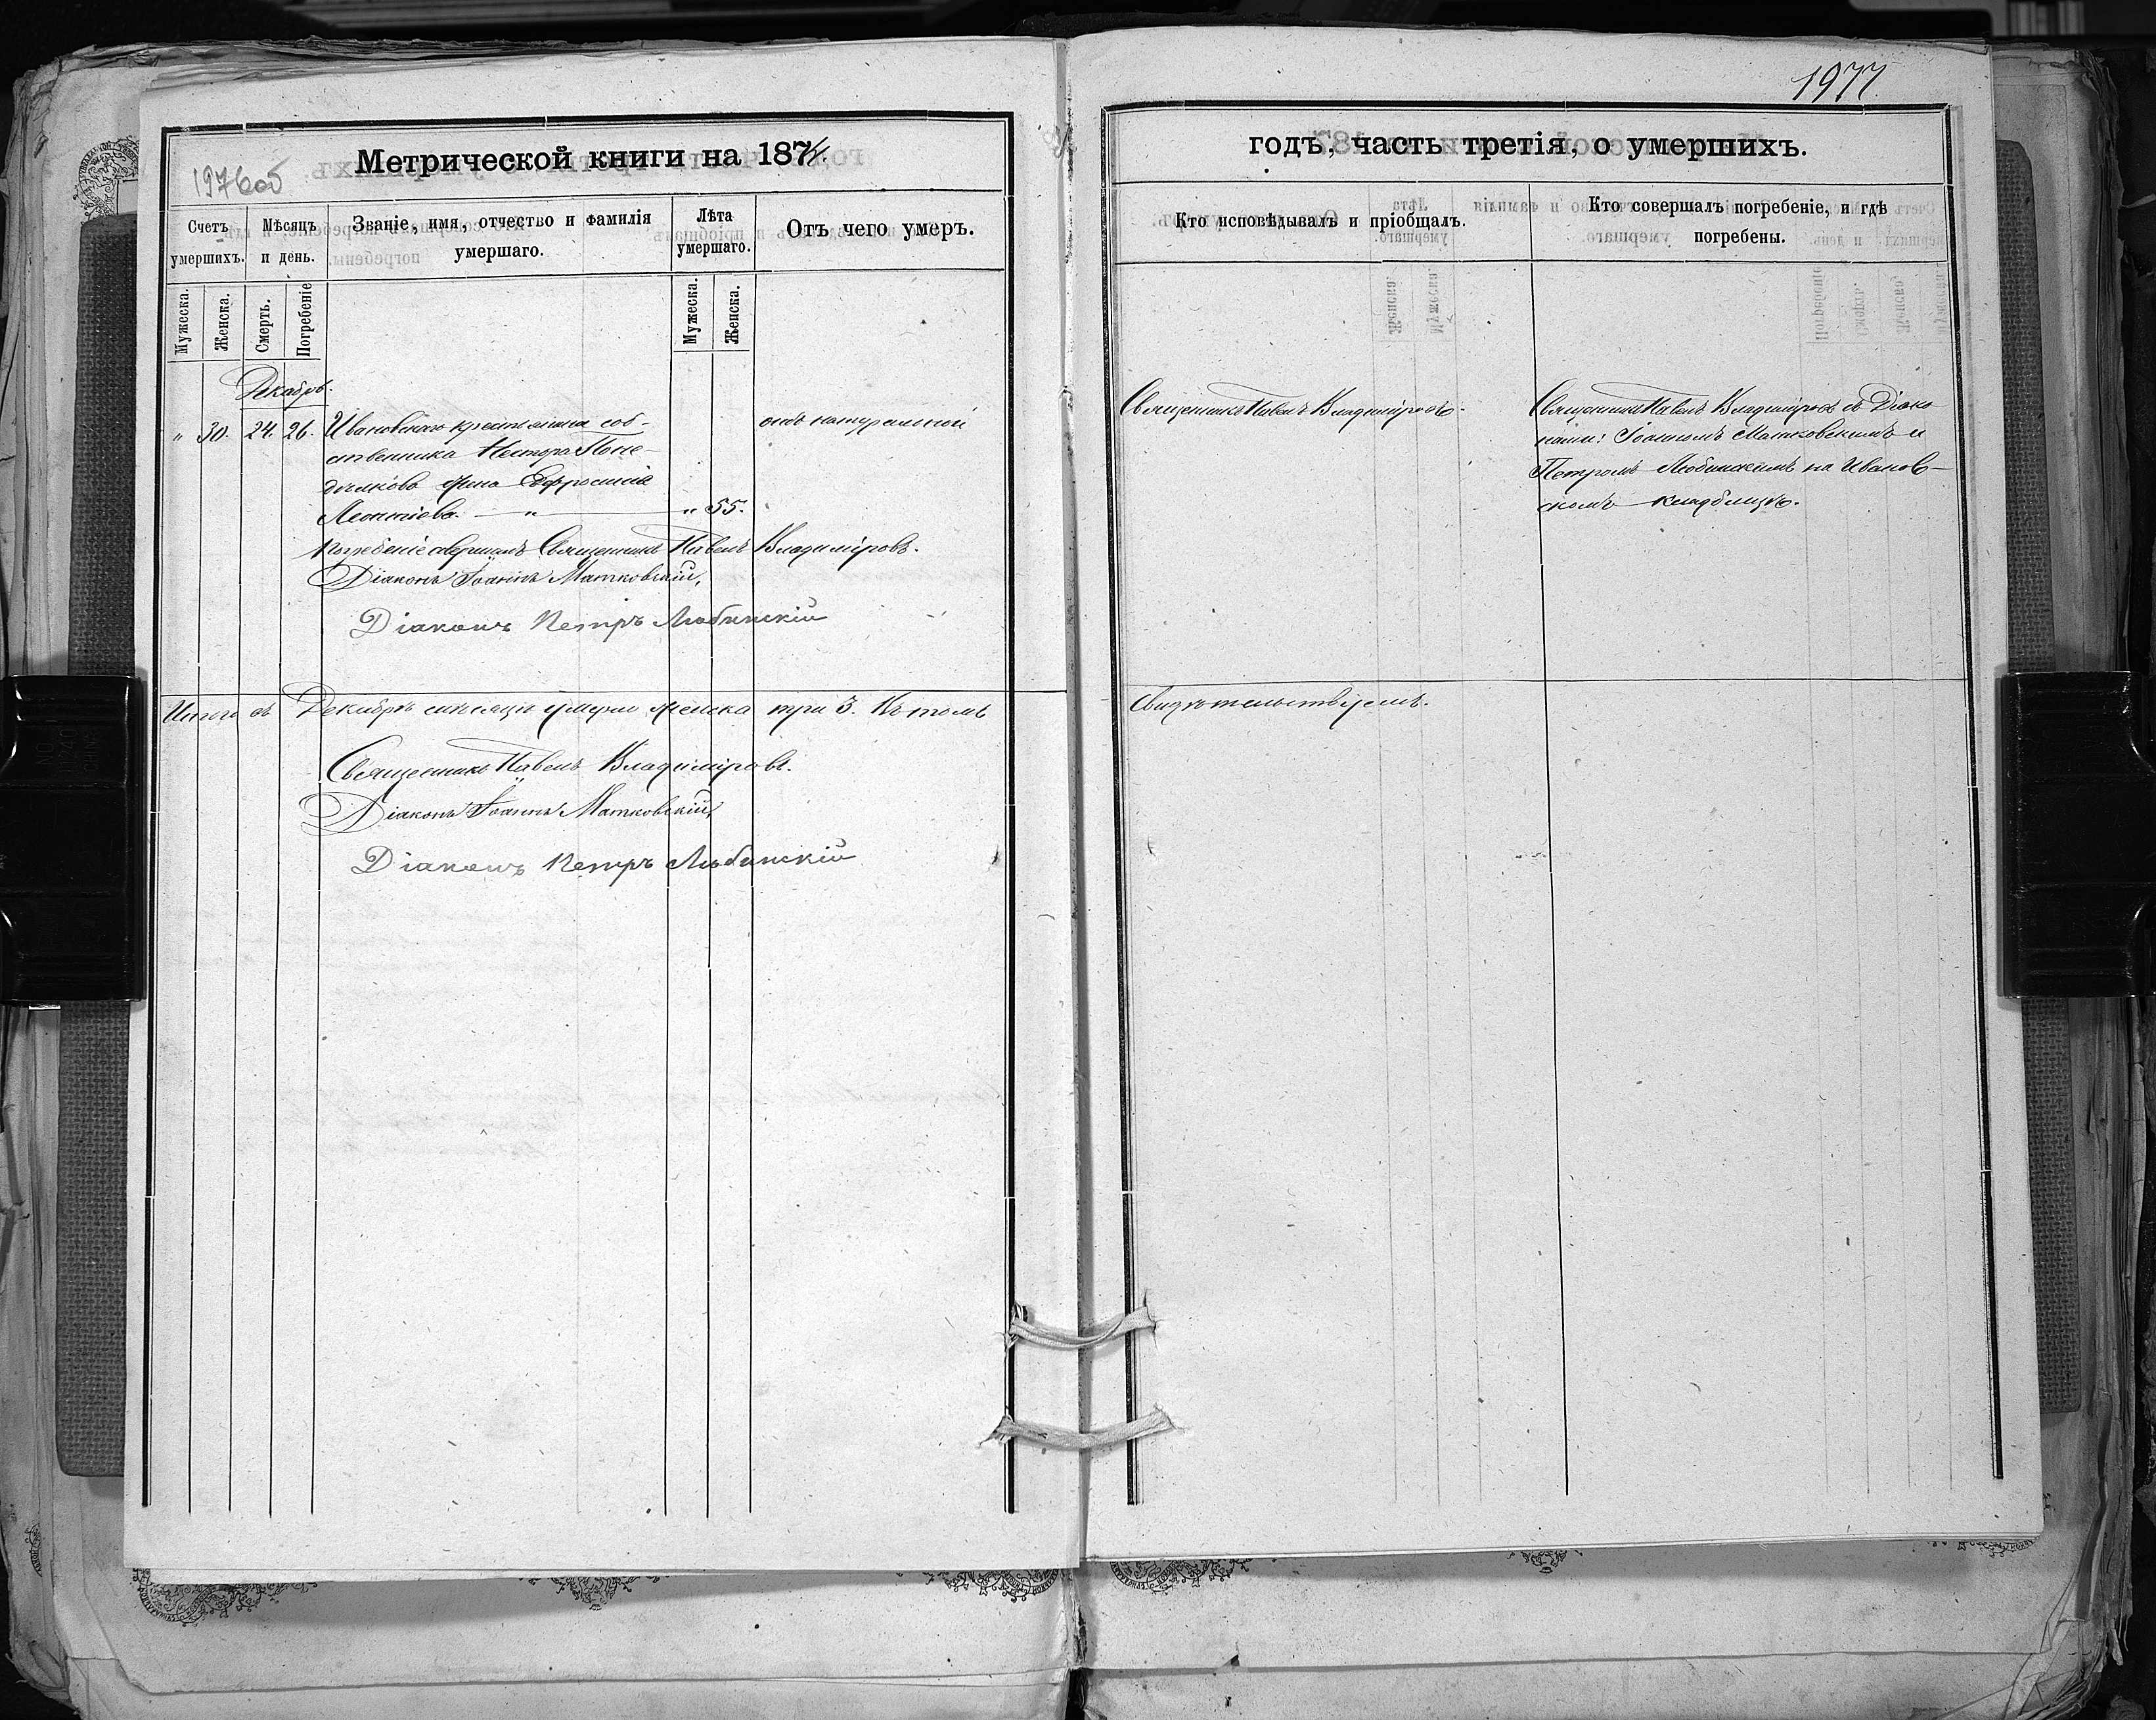 1976об
Метрической книги на 1874.
Счетъ умершихъ.
Мѣсяцъ и день.
Званіе, имя, отчество и фамилія умершаго.
Лѣта умершаго.
Отъ чего умеръ.
Мужеска.
Женска.
Смерть.
Погребеніе
Мужеска.
Женска.
Декабрь.
" 30. 24. 26. Ивановскаго крестьянина соб-
ственника Нестора Поне-
дѣлкова жена Евфросинія
Леонтіева. — " — " 55.
отъ натуральной
Погребеніе совершалъ Священникъ Павелъ Владиміровъ.
Діаконъ Іоаннъ Матковскій,
Діаконъ Петръ Любинскій
Итого въ Декабрѣ мѣсяцѣ умерло женска три 3. Въ томъ
Священникъ Павелъ Владиміровъ.
Діаконъ Іоаннъ Матковскій,
Діаконъ Петръ Любинскій
1977
годъ, часть третія, о умершихъ.
Кто исповѣдывалъ и пріобщалъ.
Кто совершалъ погребеніе, и гдѣ
погребены.
Священникъ Павелъ Владиміровъ.
Священникъ Павелъ Владиміровъ съ Діако-
нами: Іоанномъ Матковскимъ и
Петромъ Любинскимъ на Иванов-
скомъ кладбищѣ.
свидѣтельствуемъ.